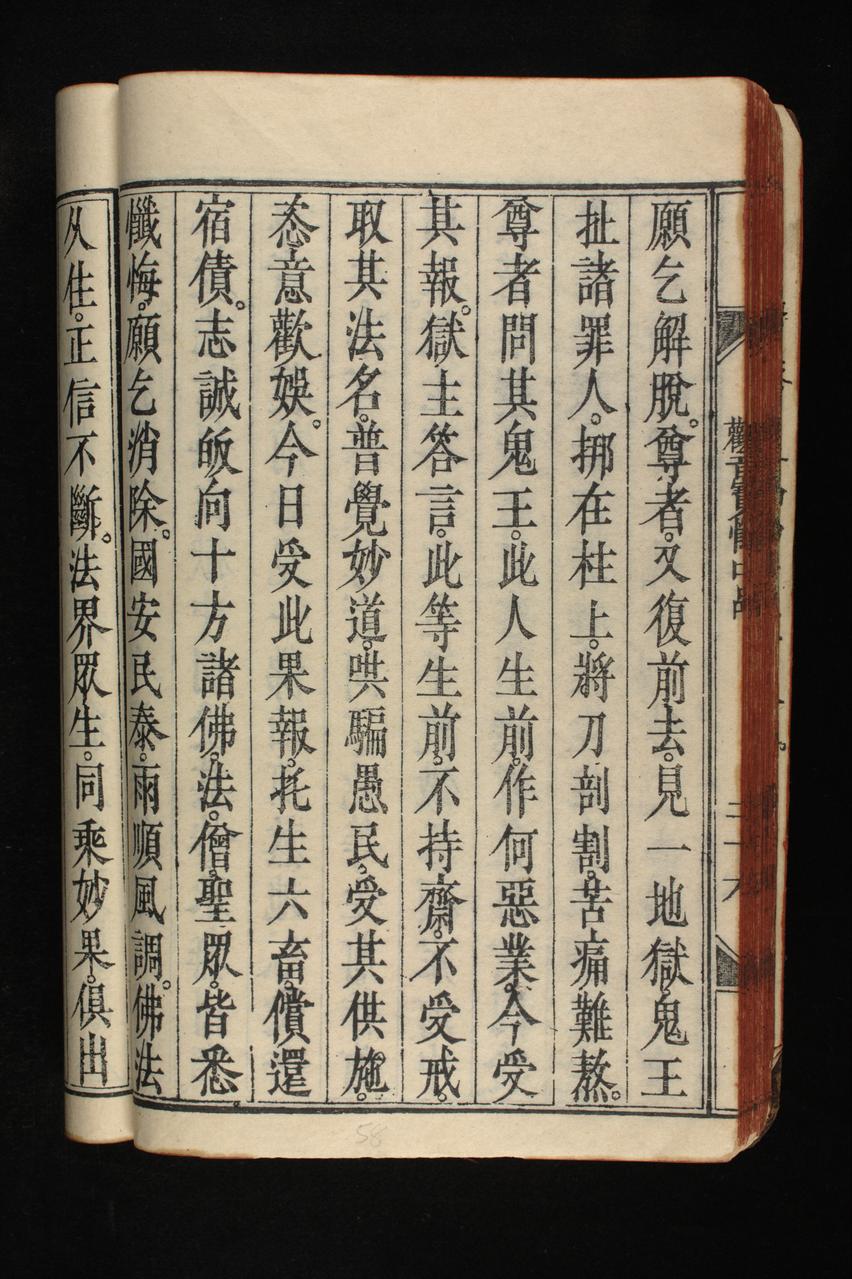 願乞解脫。尊者。又復前去。見一地獄。鬼王
扯諸罪人。掷在柱上。將刀剖割。苦痛難熬。
尊者問其鬼王。此人生前。作何惡業。今受
其報。獄主答言。此等生前。不持齋。不受戒。
取其法名。普覺妙道。哄騙愚民。受其供施。
恣意歡娛。今日受此果報。托生六畜。償還
宿債。志誠皈向十方諸佛。法。僧。聖眾。皆悉。
懺悔。願乞消除。國安民泰。雨順風調。佛法
从住。正信不斷。法界眾生。同乘妙果。俱出